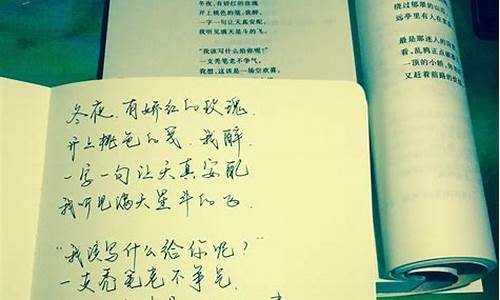 冬夜,有娇红的玫瑰
开上桃色的笺,我醉,
一字一句让天真安配,
我听见满天星斗的飞。
“我该写什么给你呢?”
一支秃笔老不争气,
我想,这该是一场空欢喜。
绕过郁翠的山
远亭里有人在
最是那迷人的
看,乱鸦正点破
一顶的小轿,
又赶着前路的
冬夜,有娇红的玫瑰,
开上桃色的笺,我醉
一字一句让天真安配
我听见满天星斗的飞
“我该写什么给你呢?”
一支秃笔老不争气